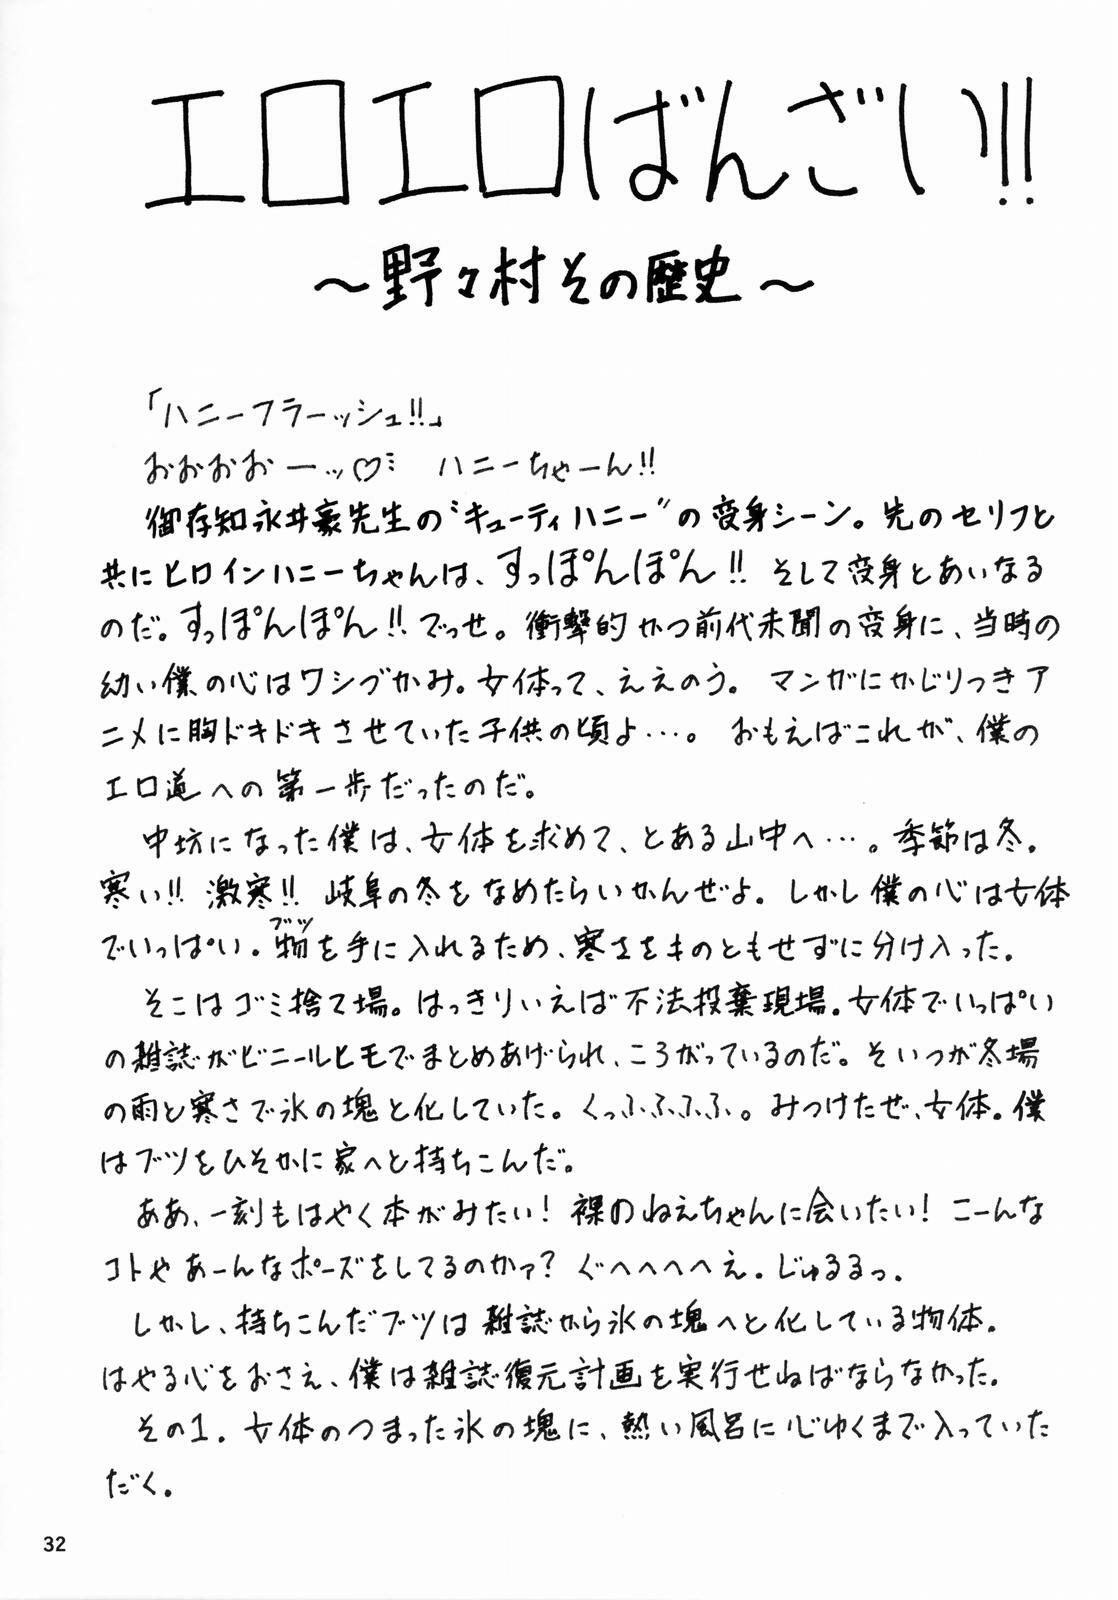 エロエロばんざい!!
～野々村その歴史～
「ハニーフラーッシュ!!」
おおおおーッ♡ ハニーちゃーん!!
御存知永井豪先生の“キューティハニー”の変身シーン。先のセリフと
共にヒロインハニーちゃんは、すっぽんぽん!! そして変身とあいなる
のだ。すっぽんぽん!! でっせ。衝撃的かつ前代未聞の変身に、当時の
幼い僕の心はワシづかみ。女体って、ええのう。 マンガにかじりつきア
ニメに胸ドキドキさせていた子供の頃よ…。 おもえばこれが、僕の
エロ道への第一歩だったのだ。
中坊になった僕は、女体を求めて、とある山中へ…。季節は冬。
寒い!! 激寒!! 岐阜の冬をなめたらいかんぜよ。しかし僕の心は女体
でいっぱい。物を手に入れるため、寒さをものともせずに分け入った。
ブツ
そこはゴミ捨て場。はっきりいえば不法投棄現場。女体でいっぱい
の雑誌がビニールヒモでまとめあげられ、ころがっているのだ。そいつが冬場
の雨と寒さで氷の塊と化していた。くっふふふふ。みつけたぜ、女体。僕
はブツをひそかに家へと持ちこんだ。
ああ、一刻もはやく本がみたい! 裸のねえちゃんに会いたい! こーんな
コトやあーんなポーズをしてるのかァ? ぐへへへへえ。じゅるるっ。
しかし、持ちこんだブツは雑誌から氷の塊へと化している物体。
はやる心をおさえ、僕は雑誌復元計画を実行せねばならなかった。
その1。女体のつまった氷の塊に、熱い風呂に心ゆくまで入っていた
だく。
32